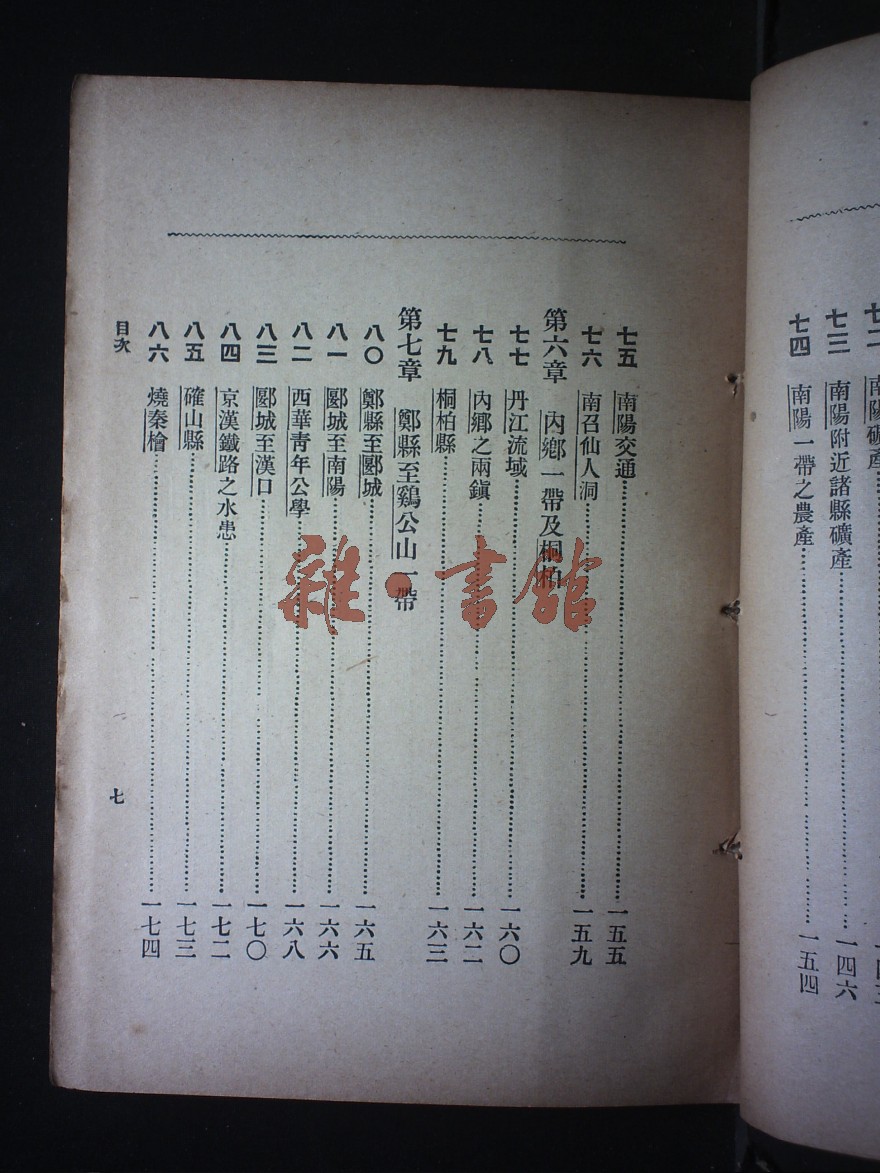 七二 南陽礦產
七三 南陽附近諸縣礦產……一四六
七四 南陽一帶之農產……一五四
七五 南陽交通……一五五
七六 南召仙人洞……一五九
第六章 內鄉一帶及桐柏
七七 丹江流域……一六〇
七八 內鄉之兩鎭……一六二
七九 桐柏縣……一六三
第七章 鄭縣至鷄公山一帶
八〇 鄭縣至郾城……一六五
八一 郾城至南陽……一六六
八二 西華靑年公學……一六八
八三 郾城至漢口……一七〇
八四 京漢鐵路之水患……一七二
八五 確山縣……一七三
八六 燒秦檜……一七四
目次
七
雜·書館